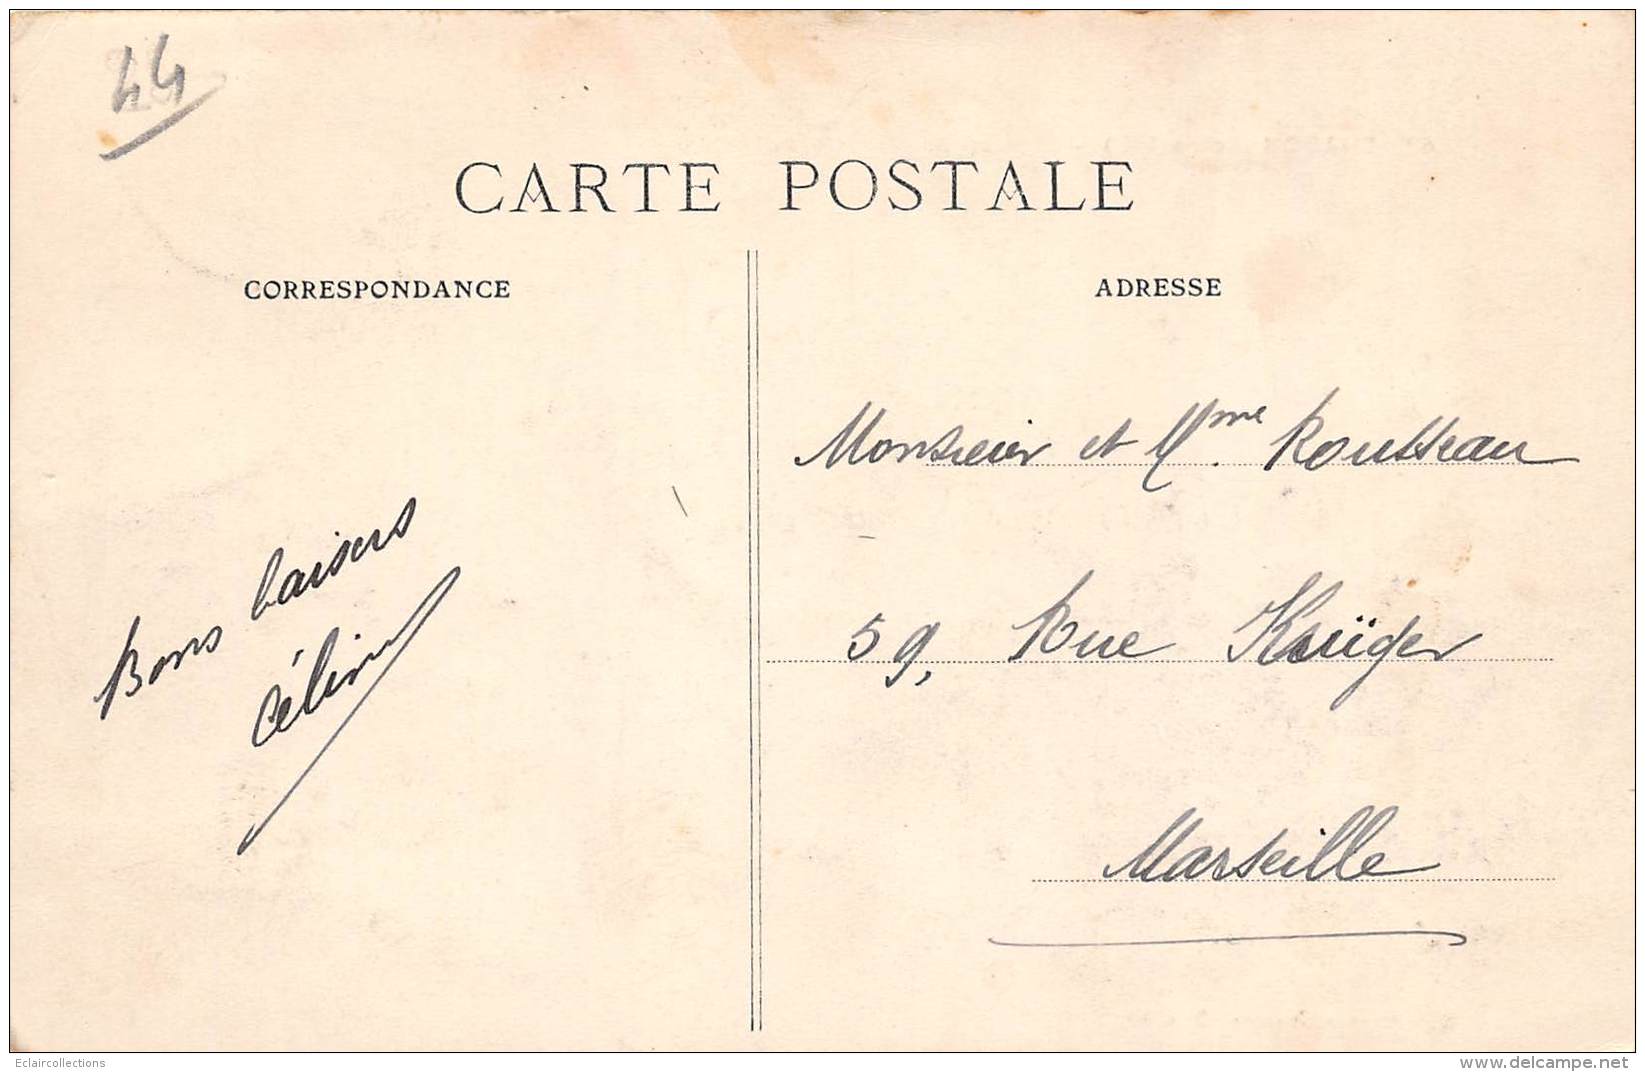 44
CARTE POSTALE
CORRESPONDANCE
ADRESSE
Bons baisers
Céline
Monsieur et Mme. Rousseau
59, Rue Krüger
Marseille
Eclaircollections
www.delcampe.net